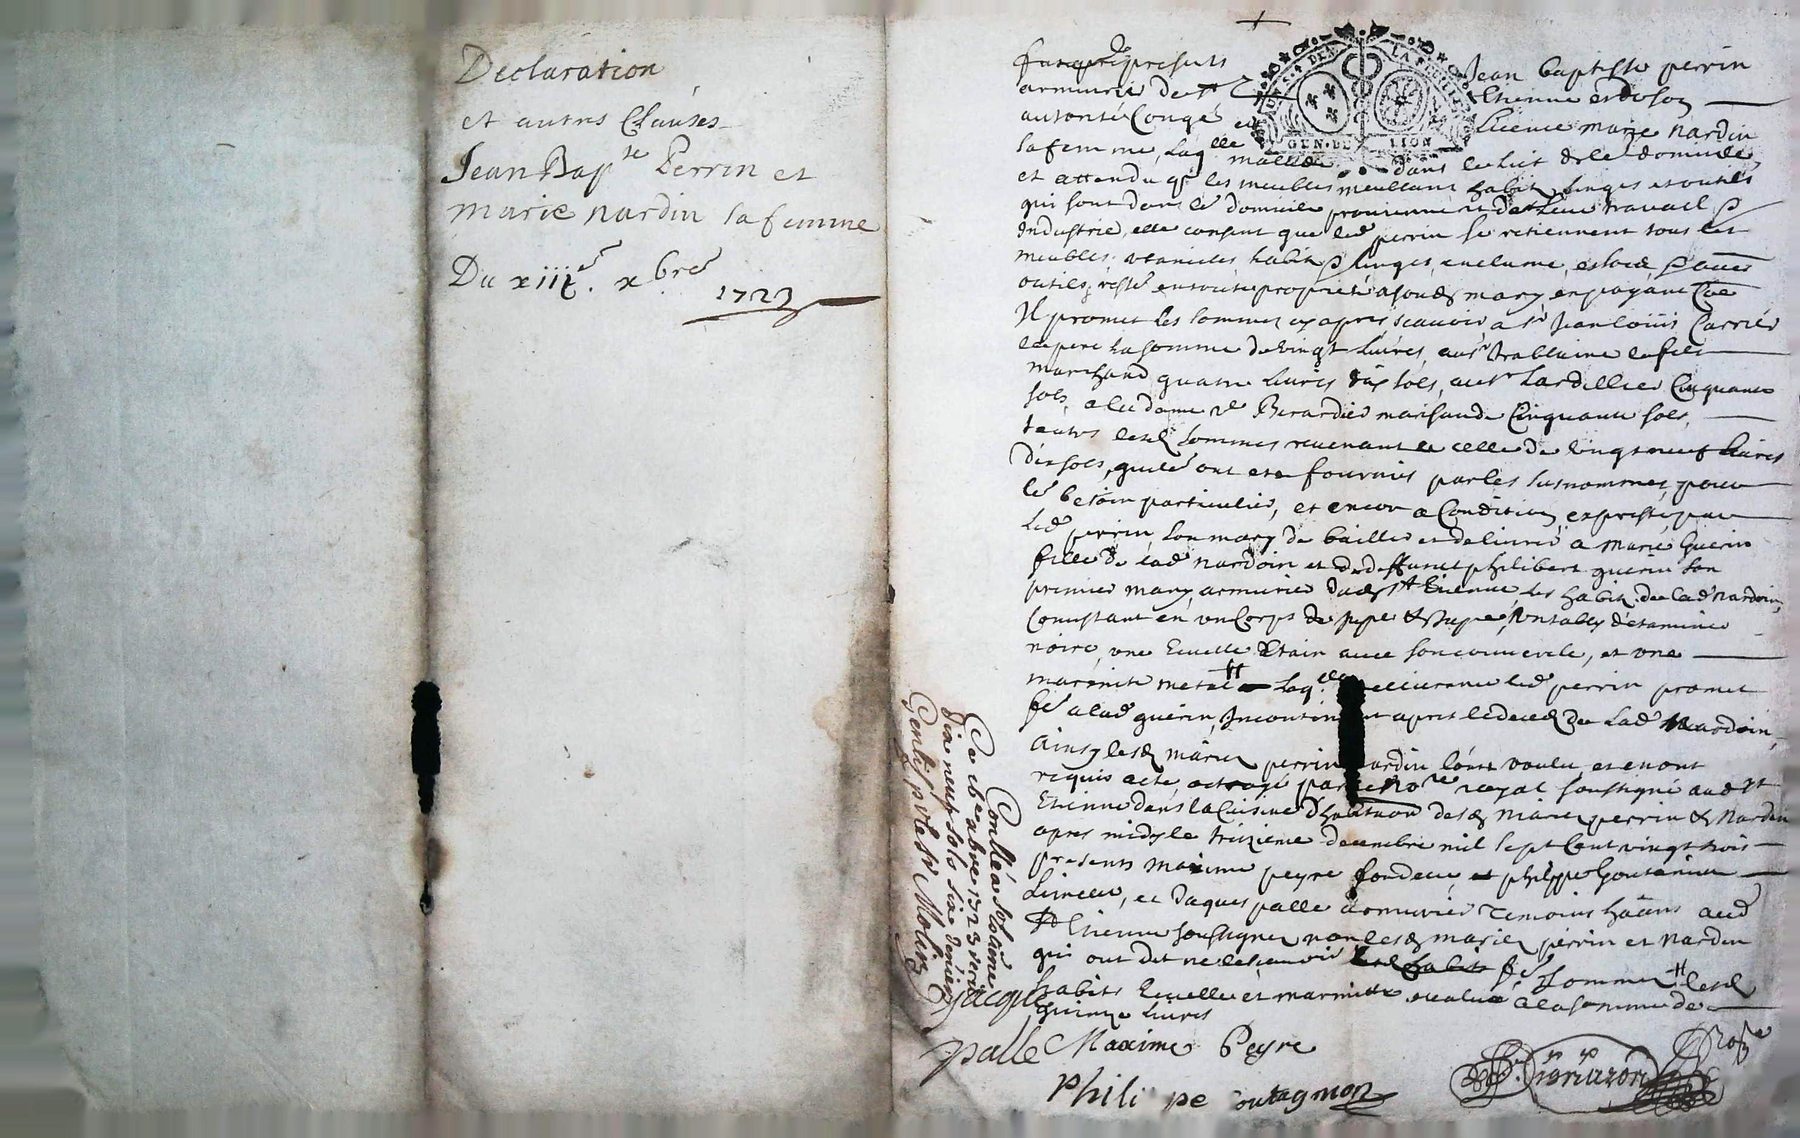 Declaration
et autres Clauses
Jean Bap.te Perrin et
marie nardin sa femme
Du xiiie. xbre
1723
presents Jean baptiste perrin
armurié de st Etienne et de son
autorité Congé et Licence marie nardin
sa femme, laqlle malade dans le lict de le domicile,
et attendu q. les meubles meublant habits linges et outils
qui sont dans le domicile proviennent de leur travail &
industrie, elle consent que led perrin se retiennent tous les
meubles, utancilles, habits & linges, enclume, & autres
outils, reste en toute proprieté a son d mary, en payant Coe
Il promet les sommes cy apres, scavoir a sr Jean loüis Carrier
le pere la somme de vingt livres, au sr le fils
marchand quatre livres dix sols, au sr Lardillier Cinquante
sols, a la dame Berardier marchande Cinquante sols,
toutes lesd sommes revenant a celle de vingt neuf livres
dix sols, qui le ont ete fournis par les susnommes, pour
le besoin particulier, et encor a Condition expresse, par
led perrin son mary de bailler et delivrer a marie Guerin
fille de lad nardoin et de deffunct philibert guerin son
premier mary, armurier dud st Etienne, les habits de lad nardoin,
Consistant en un Corps de jupe & Jupe, d'etamine
noire, une Ecuelle Etain avec son couvercle, et une
marmite metal laq.lle delivrance led perrin promet
fe a lad guerin, Incontinent apres le deced de lad Nardoin,
Ainsy lesd mariez perrin nardin l'ont voulu et en ont
requis acte, octroyé par le nore royal soussigné aud st
Etienne dans la Cuisine d'habitaon desd mariez perrin & Nardin
apres midy le trizieme decembre mil sept Cent vingt trois
presents maxime peyre fondeur, philippe Goutanion
Limeur, et Jaques palle armurier Temoins haans aud
st Etienne soussignez non lesd mariez perrin et nardin
qui ont dit ne le scavoir fe sommez # lesd
habits Ecuelle et marmitte evalue a la somme de
quinze livres
Conllé a st etienne
Ce xbre 1723 recu
dix neuf sols six deniers
Gentil pr le sr Molin
Jacque
palle Maxime Peyre
Phili pe Goutagnon
Nore